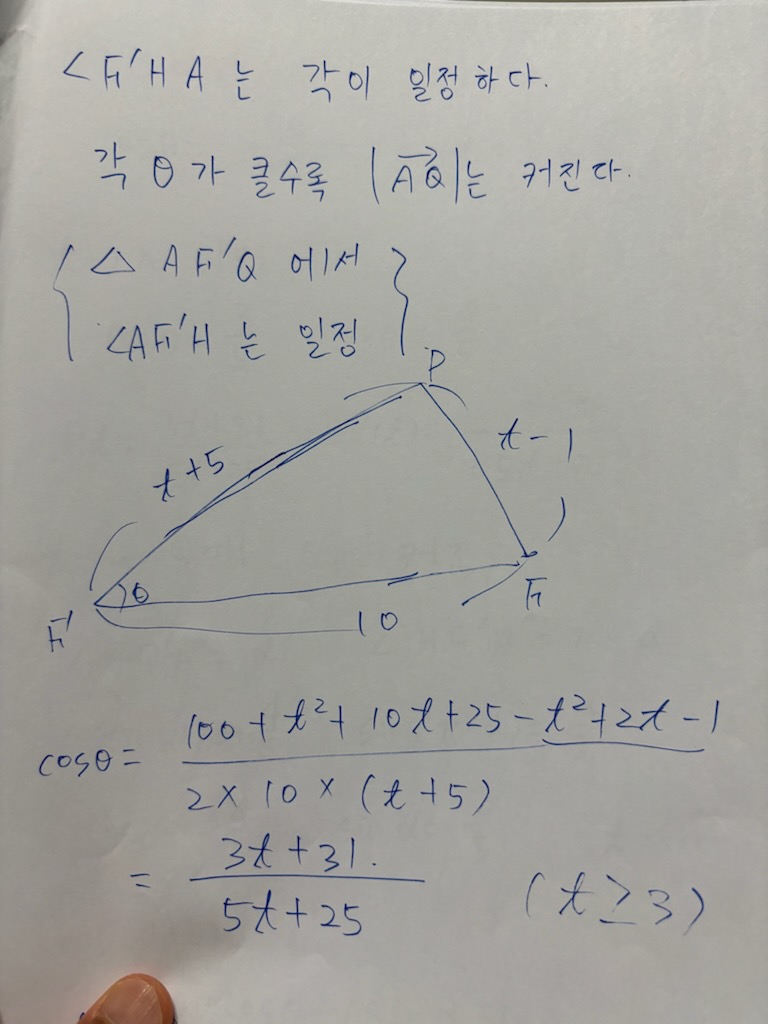 ∠F'HA 는 각이 일정하다.
각 θ가 클수록 |AQ→|는 커진다.
{ △ AF'Q 에서
∠AF'H 는 일정 }
P
t+5
t-1
θ
F'
10
F
cosθ = (100+t²+10t+25-t²+2t-1) / (2×10×(t+5))
= (3t+31.) / (5t+25) (t≥3)